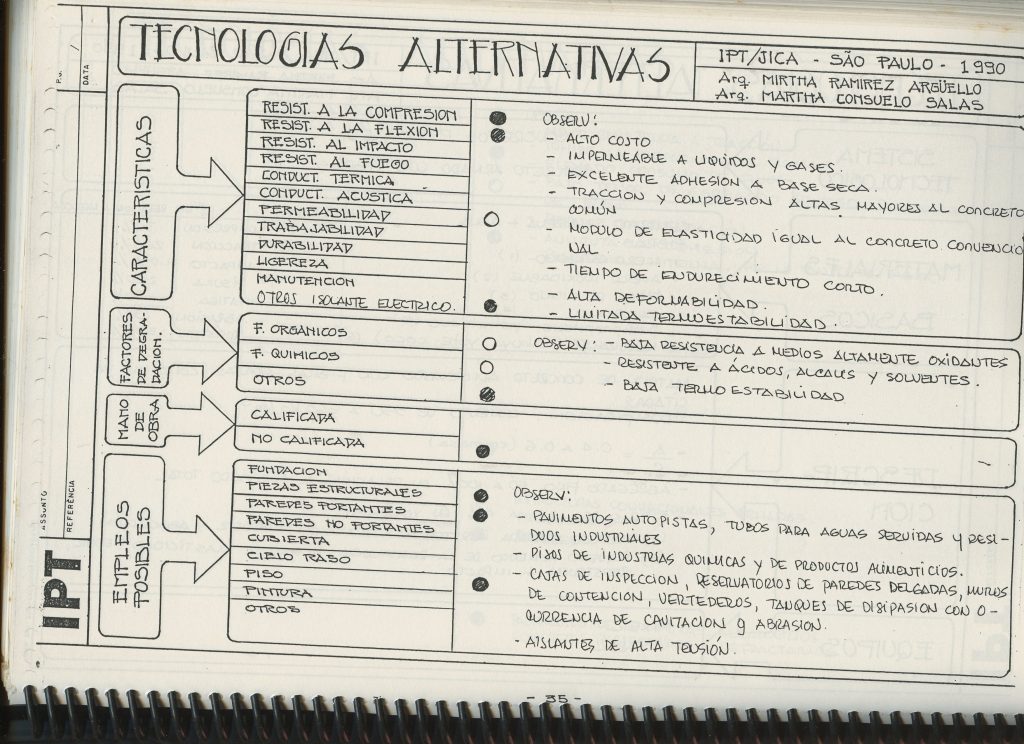 TECNOLOGIAS ALTERNATIVAS
IPT/JICA - SÃO PAULO - 1990
Arq. MIRTHA RAMIREZ ARGÜELLO
Arq. MARTHA CONSUELO SALAS
P.u. /
DATA
ASSUNTO
REFERÊNCIA
IPT
CARACTERISTICAS
RESIST. A LA COMPRESION
RESIST. A LA FLEXION
RESIST. AL IMPACTO
RESIST. AL FUEGO
CONDUCT. TERMICA
CONDUCT. ACUSTICA
PERMEABILIDAD
TRABAJABILIDAD
DURABILIDAD
LIGEREZA
MANUTENCION
OTROS ISOLANTE ELECTRICO.
OBSERV:
- ALTO COSTO
- IMPERMEABLE A LIQUIDOS Y GASES.
- EXCELENTE ADHESION A BASE SECA.
- TRACCION Y COMPRESION ALTAS MAYORES AL CONCRETO
COMÚN
- MODULO DE ELASTICIDAD IGUAL AL CONCRETO CONVENCIO
NAL
- TIEMPO DE ENDURECIMIENTO CORTO.
- ALTA DEFORMABILIDAD.
- LIMITADA TERMOESTABILIDAD.
FACTORES
DE DEGRA-
DACION.
F. ORGANICOS
F. QUIMICOS
OTROS
OBSERV: - BAJA RESISTENCIA A MEDIOS ALTAMENTE OXIDANTES
- RESISTENTE A ÁCIDOS, ALCALIS Y SOLVENTES.
- BAJA TERMO ESTABILIDAD
MANO
DE
OBRA
CALIFICADA
NO CALIFICADA
EMPLEOS
POSIBLES
FUNDACION
PIEZAS ESTRUCTURALES
PAREDES PORTANTES
PAREDES NO PORTANTES
CUBIERTA
CIELO RASO
PISO
PINTURA
OTROS
OBSERV:
- PAVIMENTOS AUTOPISTAS, TUBOS PARA AGUAS SERVIDAS Y RESI-
DUOS INDUSTRIALES
- PISOS DE INDUSTRIAS QUIMICAS Y DE PRODUCTOS ALIMENTICIOS.
- CAJAS DE INSPECCION, RESERVATORIOS DE PAREDES DELGADAS, MUROS
DE CONTENCION, VERTEDEROS, TANQUES DE DISIPASION CON O-
CURRENCIA DE CAVITACION Y ABRASION.
- AISLANTES DE ALTA TENSIÓN.
- 35 -